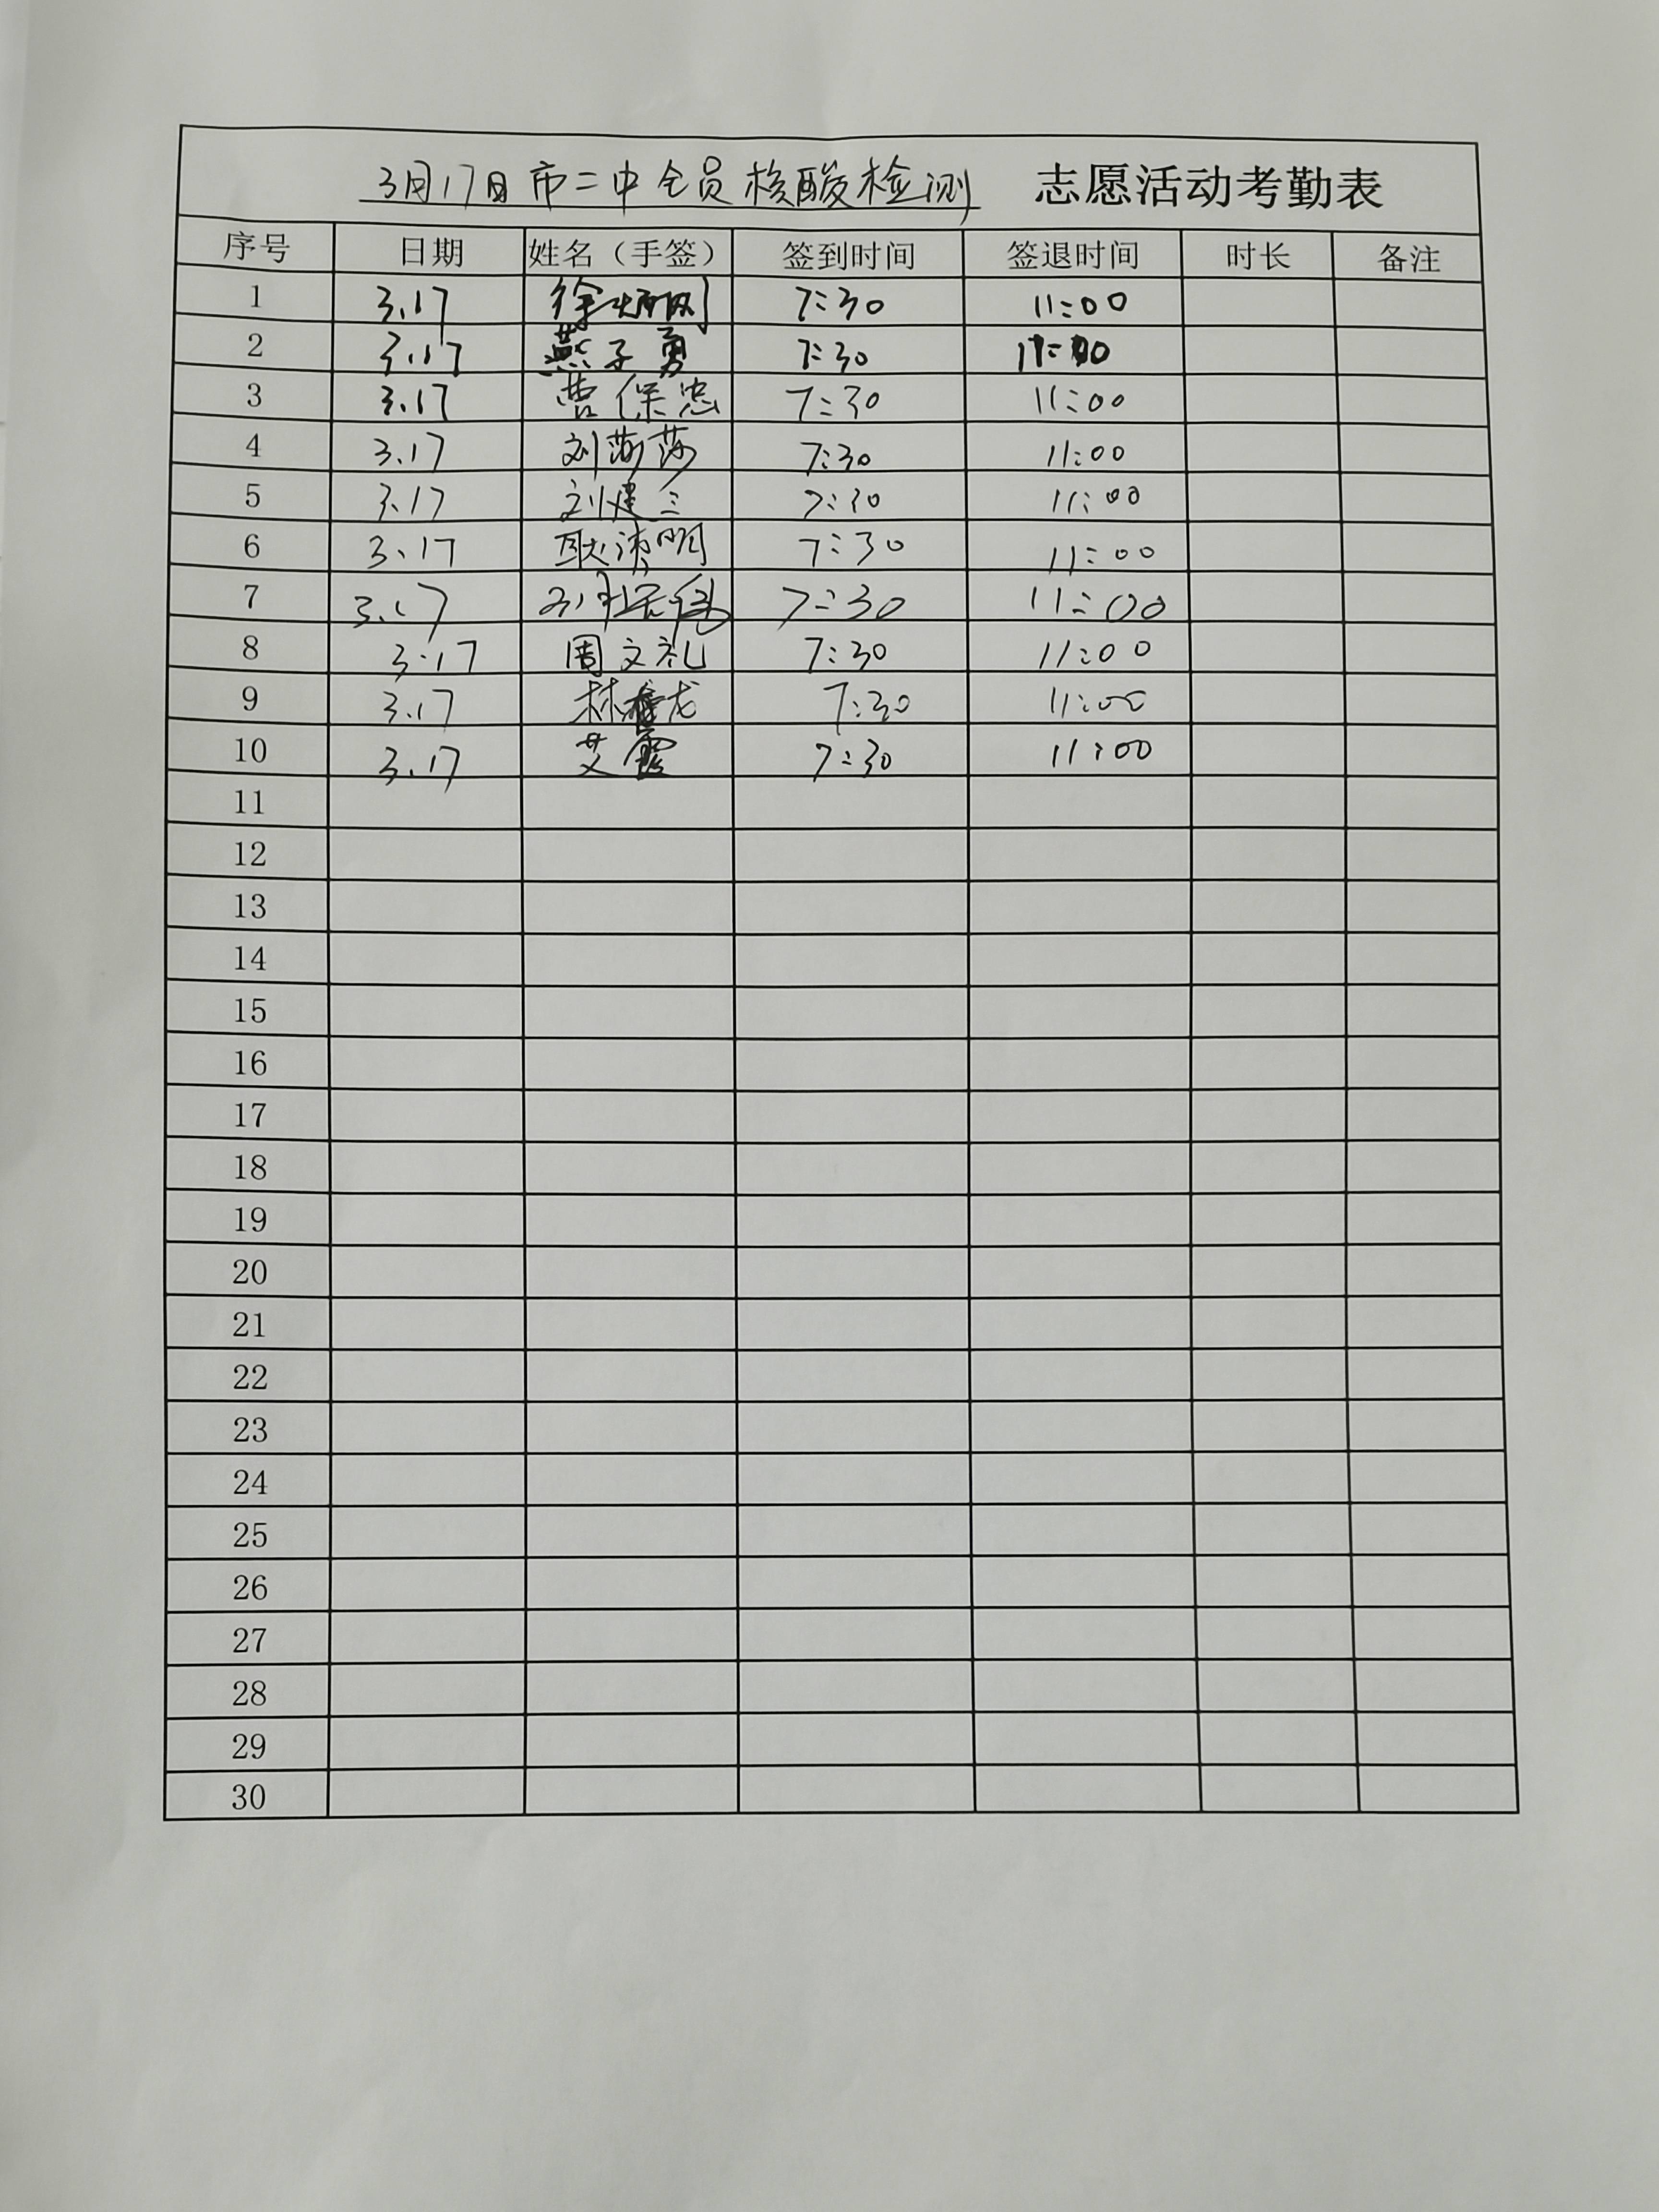 3月17日市二中全员核酸检测 志愿活动考勤表
序号 日期 姓名（手签） 签到时间 签退时间 时长 备注
1 3.17 徐炳刚 7:30 11:00
2 3.17 燕子勇 7:30 11:00
3 3.17 曹保忠 7:30 11:00
4 3.17 刘莎莎 7:30 11:00
5 3.17 刘建三 7:30 11:00
6 3.17 耿涛明 7:30 11:00
7 3.17 7:30 11:00
8 3.17 周文礼 7:30 11:00
9 3.17 林 龙 7:30 11:00
10 3.17 艾霞 7:30 11:00
11
12
13
14
15
16
17
18
19
20
21
22
23
24
25
26
27
28
29
30